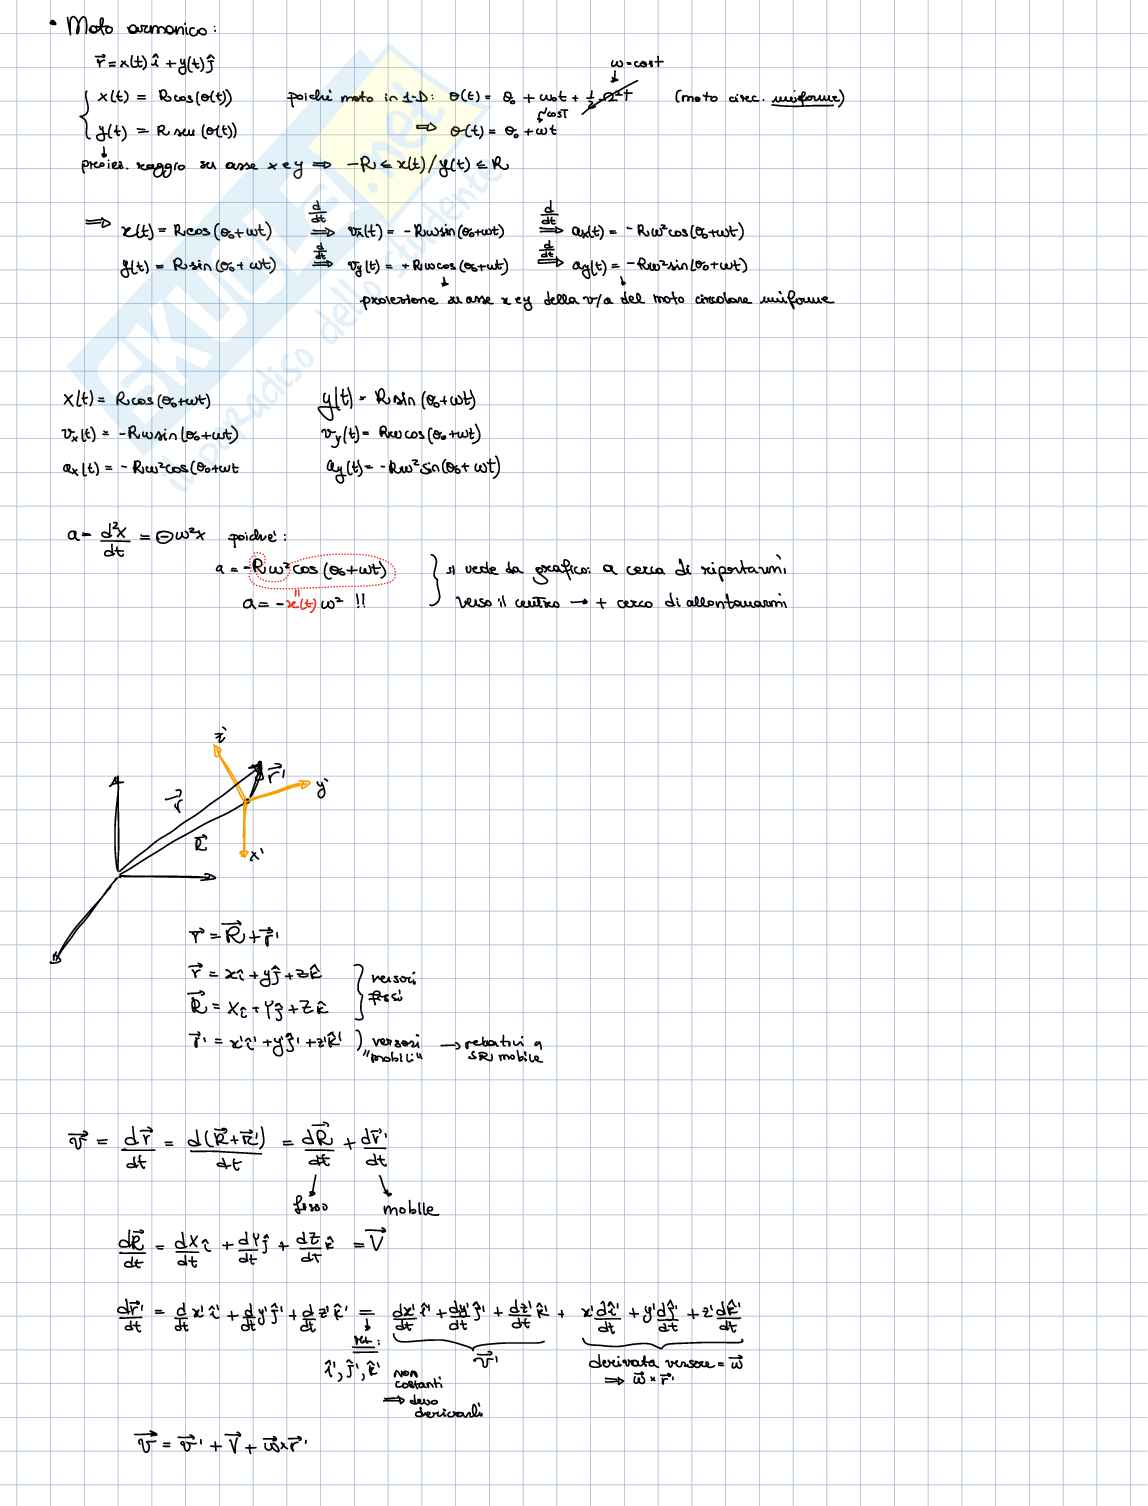 • Moto armonico:
r⃗ = x(t) î + y(t) ĵ
ω=cost
x(t) = R cos(θ(t)) poiché moto in 1-D: θ(t) = θ₀ + ω₀t + ½ αt² (moto circ. uniforme)
cost
y(t) = R sen (θ(t)) ⇒ θ(t) = θ₀ + ωt
proiez. raggio su asse x e y ⇒ -R ≤ x(t)/y(t) ≤ R
⇒ x(t) = R cos (θ₀+ωt) d/dt ⇒ vx(t) = -Rωsin(θ₀+ωt) d/dt ⇒ ax(t) = -Rω²cos(θ₀+ωt)
y(t) = R sin (θ₀+ωt) d/dt ⇒ vy(t) = +Rωcos(θ₀+ωt) d/dt ⇒ ay(t) = -Rω²sin(θ₀+ωt)
proiezione su asse x e y della v/a del moto circolare uniforme
x(t) = R cos (θ₀+ωt) y(t) = R sin (θ₀+ωt)
vx(t) = -Rωsin(θ₀+ωt) vy(t) = Rωcos(θ₀+ωt)
ax(t) = -Rω²cos(θ₀+ωt ay(t) = -Rω²sin(θ₀+ωt)
a = d²x/dt = ⊖ω²x poiché:
a = -Rω²cos(θ₀+ωt) } si vede da grafico: a cerca di riportarmi
a = -x(t)ω² !! verso il centro → + cerco di allontanarmi
z'
r⃗'
y'
r⃗
R⃗
x'
r⃗ = R⃗ + r⃗'
r⃗ = xî + yĵ + zk̂ } versori
R⃗ = Xî + Yĵ + Zk̂ fissi
r⃗' = x'î' + y'ĵ' + z'k̂' ) versori "mobili" → relativi a SR mobile
v⃗ = dr⃗/dt = d(R⃗+r⃗')/dt = dR⃗/dt + dr⃗'/dt
fisso mobile
dR⃗/dt = dX/dt î + dY/dt ĵ + dZ/dt k̂ = V⃗
dr⃗'/dt = d/dt x'î' + d/dt y'ĵ' + d/dt z'k̂' = dx'/dt î' + dy'/dt ĵ' + dz'/dt k̂' + x'dî'/dt + y'dĵ'/dt + z'dk̂'/dt
v⃗' derivata versore = ω⃗
î', ĵ', k̂' non costanti ⇒ ω⃗ × r⃗'
⇒ devo derivarli
v⃗ = v⃗' + V⃗ + ω⃗×r⃗'
SKUOLA.net
il paradiso dello studente